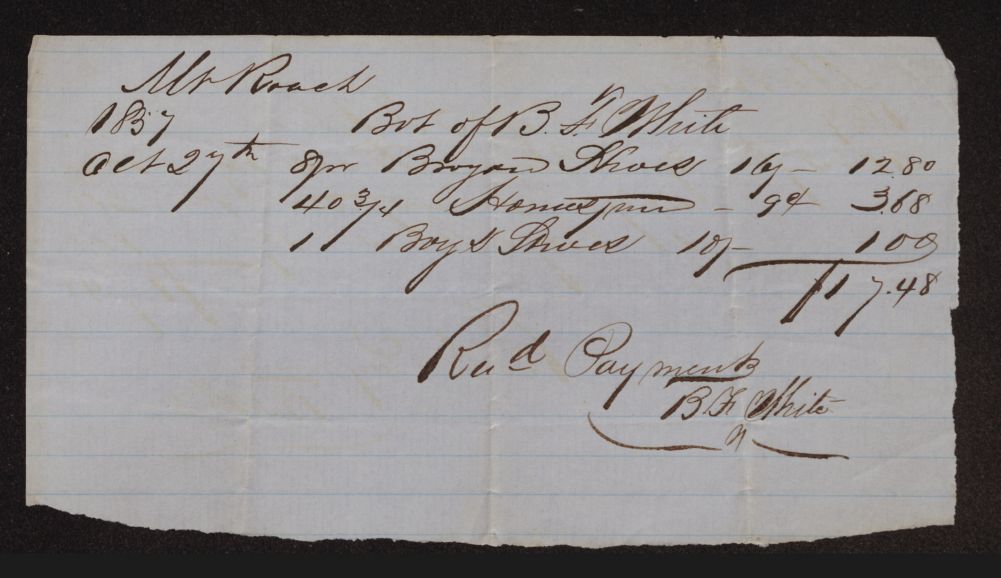 Mr Roach
1857 Bot of B. F White
Oct 27th 8 pr Brogan Shoes 16/- 12.80
40 3/4 Homespun - 9¢ 3.68
1 Boys Shoes 10/- 1 00
$17.48
Recd Payment
B. F. White